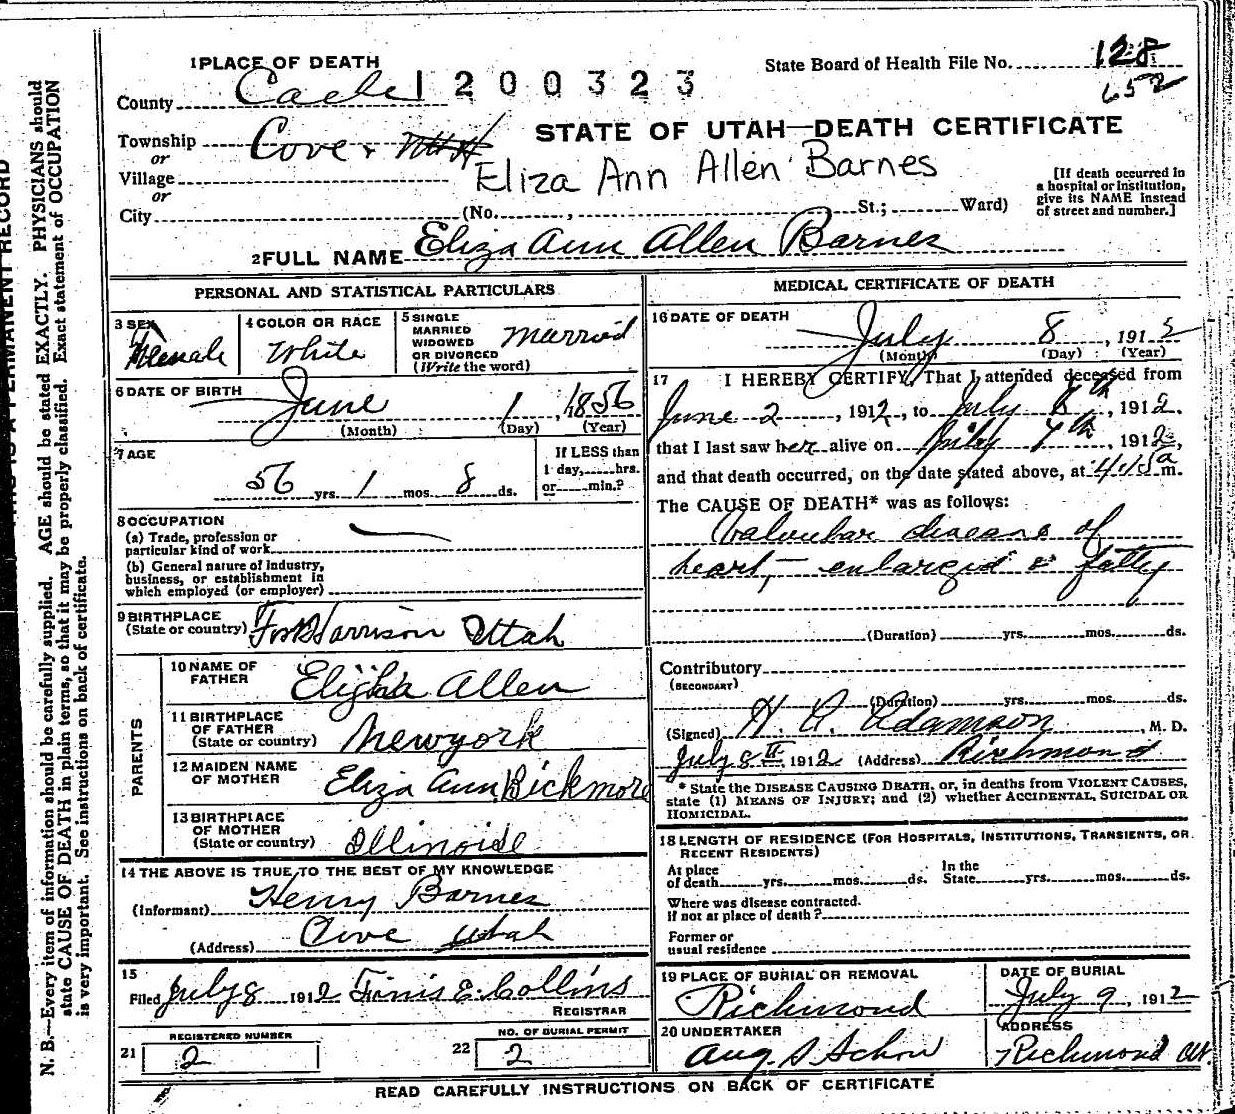 1 PLACE OF DEATH
State Board of Health File No. 128
652
County Cache 1200323
STATE OF UTAH—DEATH CERTIFICATE
Township Cove
or
Village
or
City
Eliza Ann Allen Barnes
(No. , St.; Ward)
[If death occurred in
a hospital or institution,
give its NAME instead
of street and number.]
2 FULL NAME Eliza Ann Allen Barnes
PERSONAL AND STATISTICAL PARTICULARS
3 SEX Female
4 COLOR OR RACE White
5 SINGLE
MARRIED
WIDOWED
OR DIVORCED
(Write the word)
Married
6 DATE OF BIRTH
June 1, 1856
(Month) (Day) (Year)
7 AGE
56 yrs. 1 mos. 8 ds.
If LESS than
1 day, hrs.
or min.?
8 OCCUPATION
(a) Trade, profession or
particular kind of work
(b) General nature of Industry,
business, or establishment in
which employed (or employer)
9 BIRTHPLACE
(State or country) Fort Harrison Utah
PARENTS
10 NAME OF
FATHER Elijha Allen
11 BIRTHPLACE
OF FATHER
(State or country) Newyork
12 MAIDEN NAME
OF MOTHER Eliza Ann Bickmore
13 BIRTHPLACE
OF MOTHER
(State or country) Illinoise
14 THE ABOVE IS TRUE TO THE BEST OF MY KNOWLEDGE
(Informant) Henry Barnes
(Address) Cove Utah
15
Filed July 8 1912 Finis E. Collins
REGISTRAR
REGISTERED NUMBER
21 2
NO. OF BURIAL PERMIT
22 2
MEDICAL CERTIFICATE OF DEATH
16 DATE OF DEATH
July 8, 1912
(Month) (Day) (Year)
17 I HEREBY CERTIFY, That I attended deceased from
June 2, 1912, to July 8th, 1912.
that I last saw her alive on July 7th, 1912,
and that death occurred, on the date stated above, at 4:15 a m.
The CAUSE OF DEATH* was as follows:
Valvular disease of
heart, — enlarged & fatty
(Duration) yrs. mos. ds.
Contributory
(SECONDARY)
(Duration) yrs. mos. ds.
(Signed) H. R. Adamson, M. D.
July 8th 1912 (Address) Richmond
* State the DISEASE CAUSING DEATH, or, in deaths from VIOLENT CAUSES,
state (1) MEANS OF INJURY; and (2) whether ACCIDENTAL, SUICIDAL OR
HOMICIDAL.
18 LENGTH OF RESIDENCE (FOR HOSPITALS, INSTITUTIONS, TRANSIENTS, OR
RECENT RESIDENTS)
At place
of death yrs. mos. ds.
In the
State yrs. mos. ds.
Where was disease contracted.
if not at place of death?
Former or
usual residence
19 PLACE OF BURIAL OR REMOVAL
Richmond
DATE OF BURIAL
July 9, 1912
20 UNDERTAKER
Aug. S. Schow
ADDRESS
Richmond Ut
READ CAREFULLY INSTRUCTIONS ON BACK OF CERTIFICATE
N. B.—Every item of information should be carefully supplied. AGE should be stated EXACTLY. PHYSICIANS should
state CAUSE OF DEATH in plain terms, so that it may be properly classified. Exact statement of OCCUPATION
is very important. See instructions on back of certificate.
IS A PERMANENT RECORD